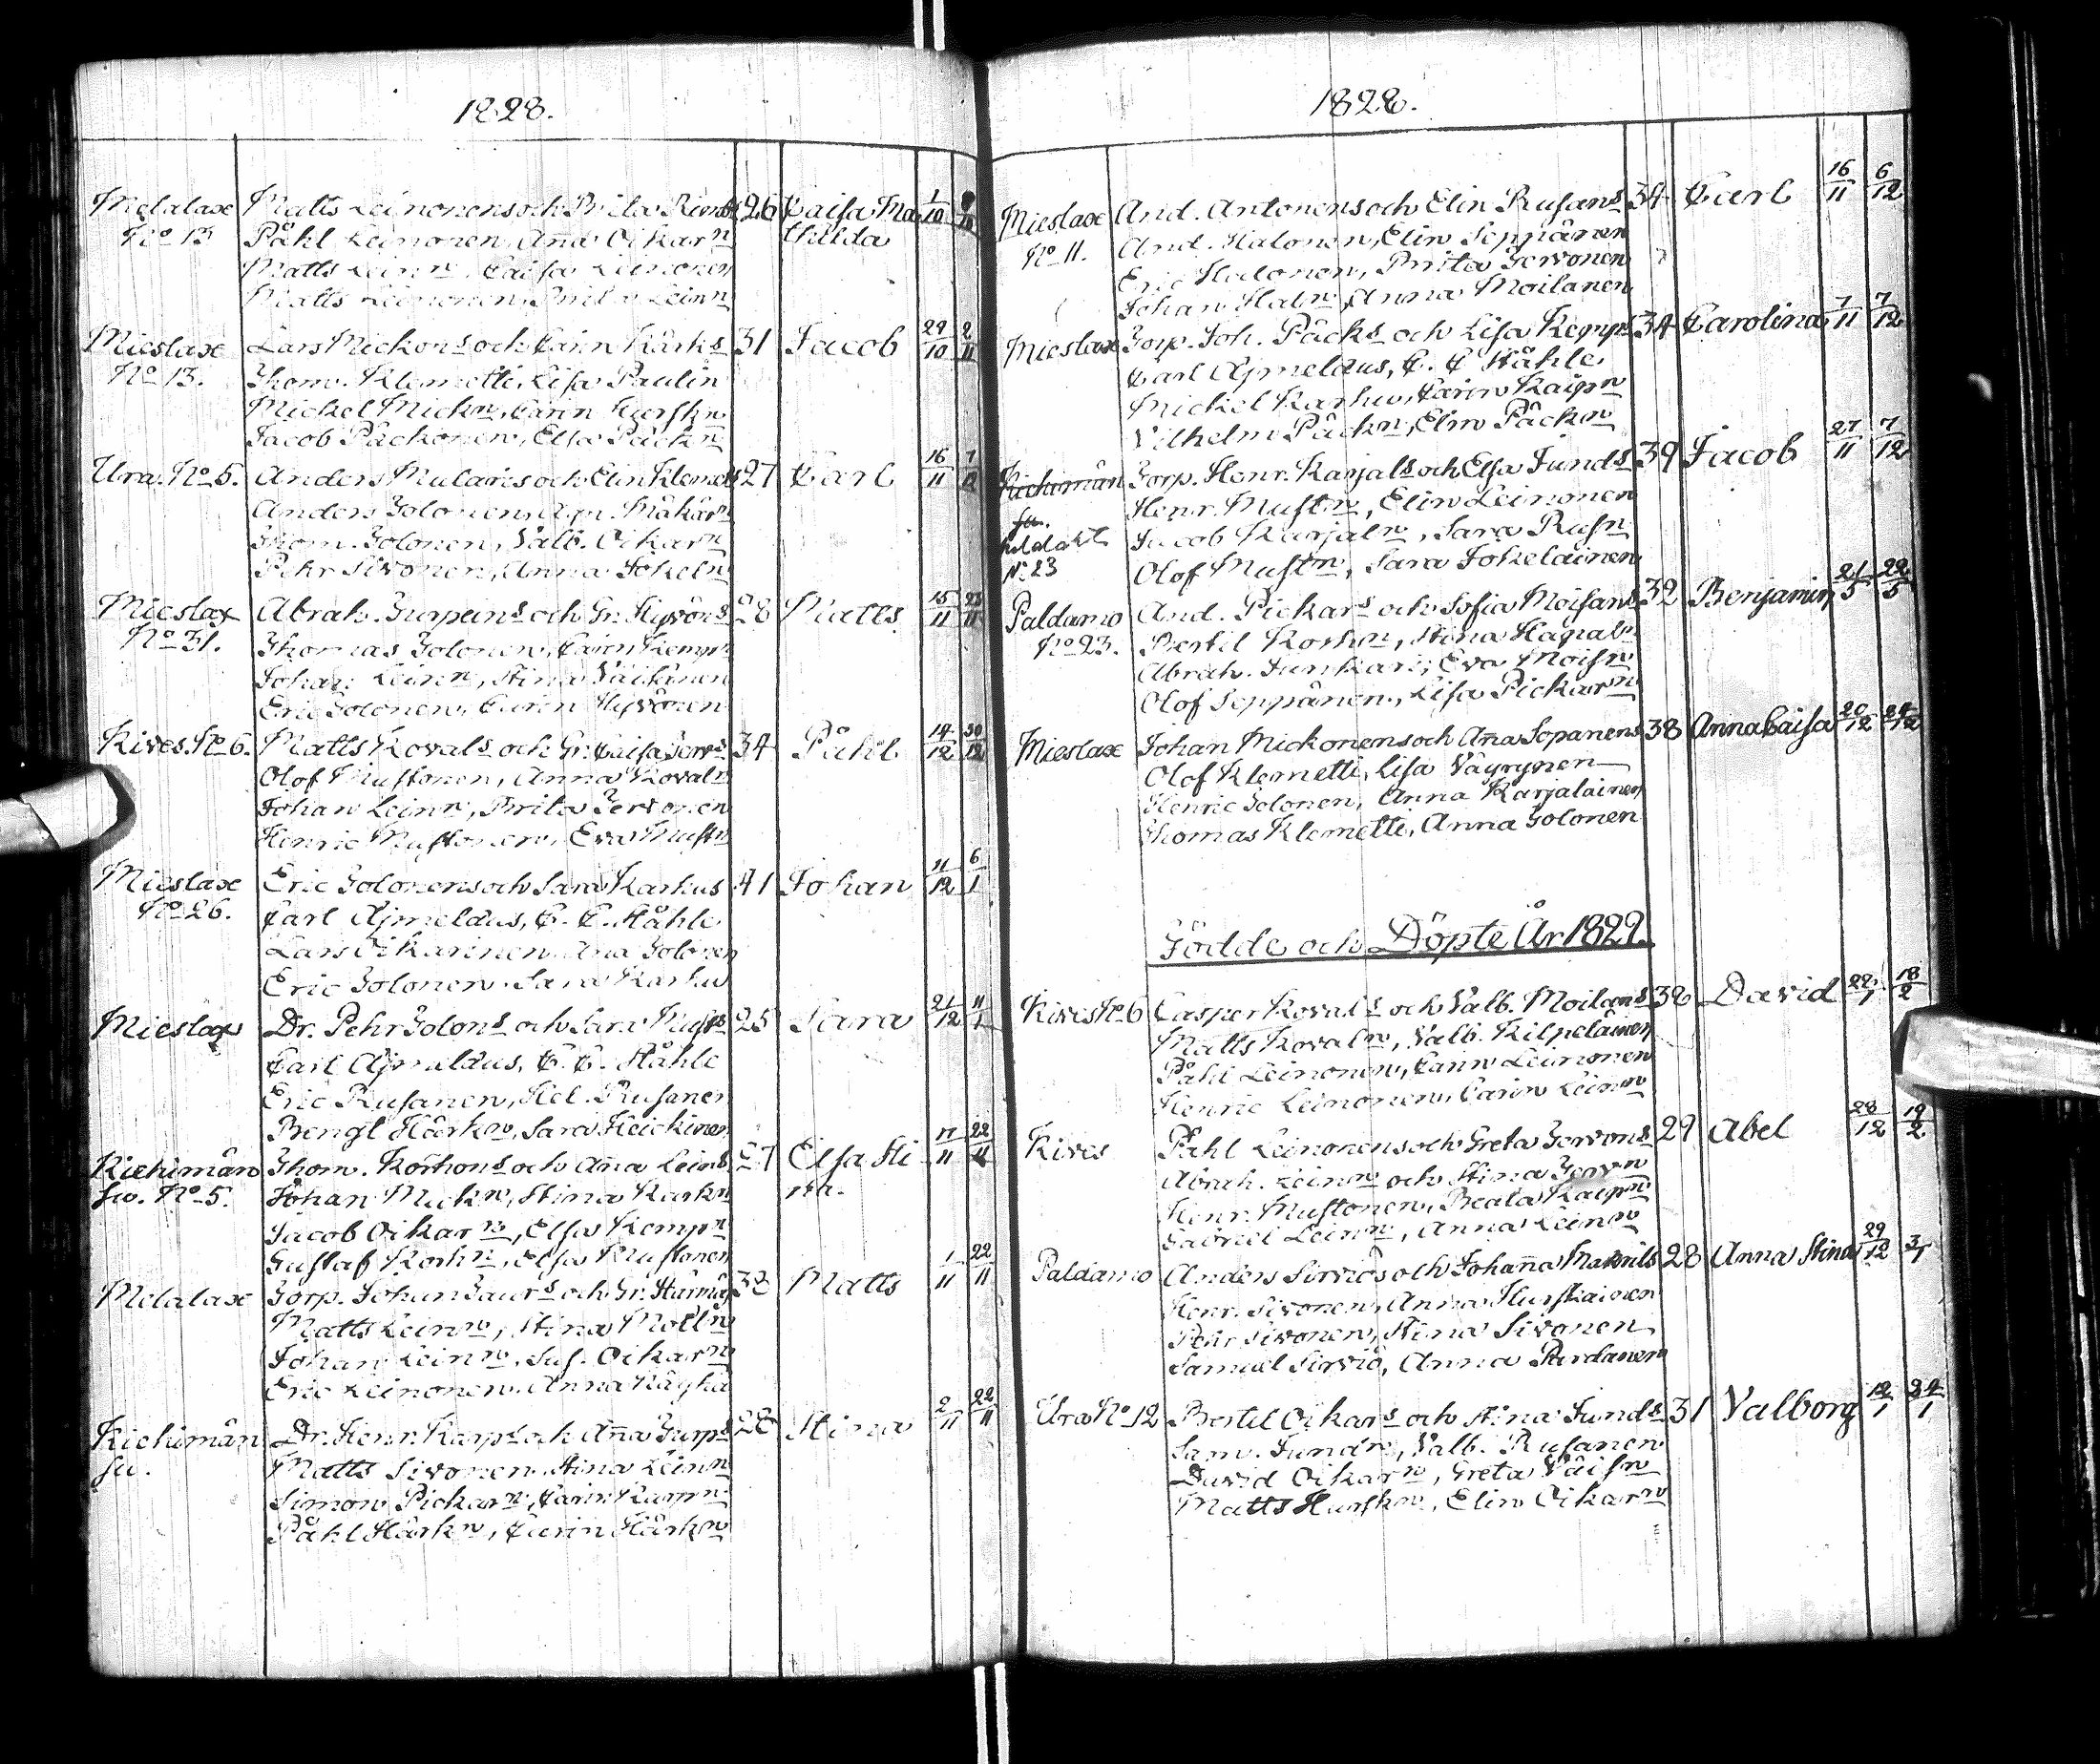 1828.
Melalax Matts Leinonens och Brita Rims 26 Caisa Ma 1/10
No 13 Påhl Leinonen, Aña Oikarn thilda
Matts Leinn, Caisa Leinonen
Matts Leinonen, Brita Leinn
Mieslax Lars Mickons och Carin Härks 31 Jacob 29/10 2/11
No 13. Thom. Klemetti, Lisa Paulin
Mickel Mickn, Carin Hurskn
Jacob Päckonen, Elsa Päckn
Ura. No 5. Anders Mularis och Elin Klemets 27 Carl 16/11 7/12
Anders Golonen, Agn. Mäkärn
Thom. Golonen, Valb. Oikarn
Pehr Sivonen, Anna Jokeln
Mieslax Abrah. Gurpeins och Gr. Hyvöns 28 Matts 15/11 23/11
No 31. Thomas Golonen, Carin Kempn
Johan Leinn, Stina Väisänen
Eric Golonen, Carin Hyvönen
Kives. No 6. Matts Kovals och Gr. Caisa Servs 34 Påhl 14/12 30/12
Olof Mustonen, Anna Kovaln
Johan Leinn, Brita Servonen
Henric Mustonen, Eva Mustn
Mieslax Eric Golonens och Sara Karhus 41 Johan 11/12 6/1
No 26. Carl Ajmelæus, C. C. Ståhle
Lars Oikarinen, Ana Golonen
Eric Golonen, Sara Karhu
Mieslax Dr. Pehr Golons och Sara Russ 25 Sara 21/12 11/1
Carl Ajmelæus, C. C. Ståhle
Eric Rusanen, Hel. Rusanen
Bengt Härkn, Sara Heickinen
Kiehimän Thom. Korhons och Aña Leins 27 Elsa Sti 17/11 22/11
su. No 5. Johan Mickn, Stina Karkn na.
Jacob Oikarn, Elsa Kempn
Gustaf Korhn, Elsa Mustonen
Melalax Gorp. Johan Gaurs och Gr. Härmä 32 Matts 1/11 22/11
Matts Leinn, Stina Mottn
Johan Leinn, Sus. Oikarn
Eric Leinonen, Anna Nägha
Kiehimän Dr. Henr. Karps och Aña Gurps 28 Stina 2/11 22/11
su. Matts Sivonen, Stina Leinn
Simon Pickarn, Carin Karpn
Påhl Härkn, Carin Härkn
1828.
Mieslax And. Antonens och Elin Rusans 34 Carl 16/11 6/12
No 11. And. Halonen, Elin Seppänen
Eric Halonen, Brita Servonen
Johan Haln, Anna Moilanen
Mieslax Gorp. Joh. Päcks och Lisa Kemps 34 Carolina 7/11 7/12
Carl Ajmelæus, C. C Ståhle
Mickel Karhu, Carin Kaipn
Vilhelm Päckn, Elin Päckn
Kiehimän Gorp. Henr. Karjals och Elsa Junds 39 Jacob 27/11 7/12
su. Henr. Mustn, Elin Leinonen
Jacob Karjaln, Sara Rusn
No 23 Olof Mustn, Sara Jokelainen
Paldamo And. Pickars och Sofia Moisans 32 Benjamin 21/5 22/5
No 23. Bertil Korhn, Stina Hagaln
Abrah. Junkari, Eva Moisn
Olof Seppänen, Lisa Pickarn
Mieslax Johan Mickonens och Aña Sopanens 38 Anna Caisa 20/12 24/12
Olof Klemetti, Lisa Väyrynen
Henric Golonen, Anna Karjalainen
Thomas Klemetti, Anna Golonen
Födde och Döpte År 1829.
Kives No 6 Casper Kovals och Valb. Moilans 32 David 22/1 18/2
Matts Kovaln, Valb. Kilpeläinen
Påhl Leinonen, Carin Leinonen
Henric Leinonen, Carin Leinn
Kives Påhl Leinonens och Greta Servons 29 Abel 28/12 19/2
Abrah. Leinn och Stina Servn
Henr. Mustonen, Beata Kaipn
Gabriel Leinn, Anna Leinn
Paldamo Anders Sirviös och Johaña Mannils 28 Anna Stina 29/12 3/1
Henr. Sivonen, Anna Hurskainen
Pehr Sivonen, Stina Sivonen
Samuel Sirviö, Anna Pardanen
Ura No 12 Bertil Oikars och Stina Junds 31 Valborg 12/1 24/1
Sam. Jundn, Valb. Rusanen
David Oikarn, Greta Väisn
Matts Hurskn, Elin Oikarn